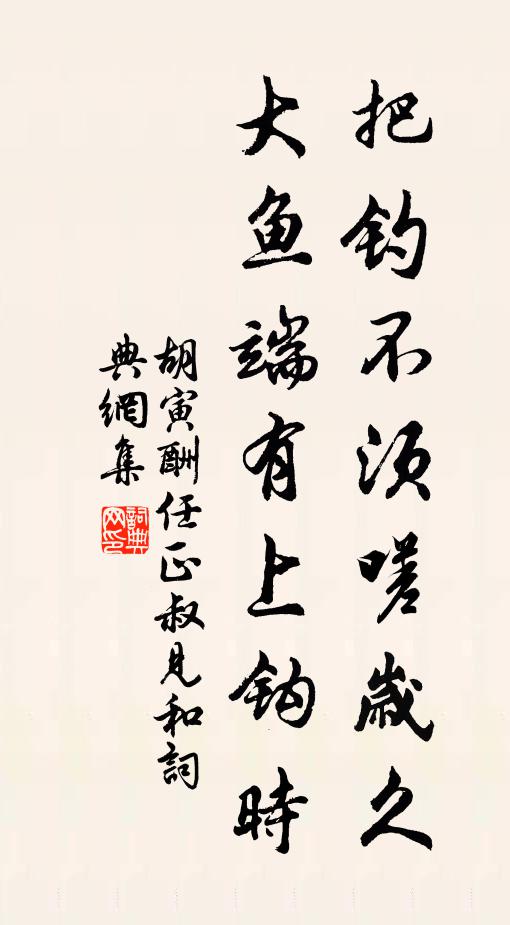 把钓不须嗟歲久
大鱼端有上钩時
胡寅酬任正叔見和詞
典網集
詞典网印